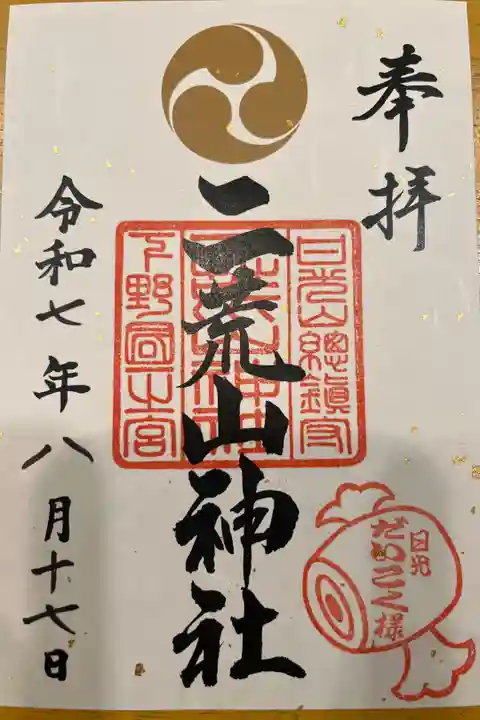 奉拝
日光山總鎮守
二荒山神社
下野國一宮
令和七年八月十七日
日光
だいこく様